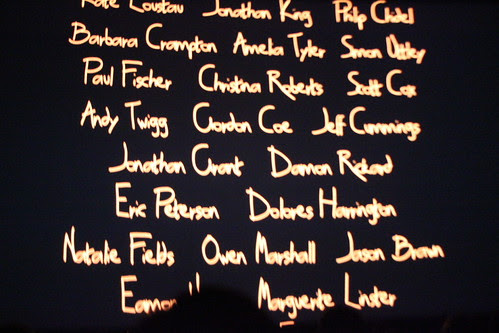 Kate Loustau Jonathan King Philip Chidel
Barbara Crampton Amelia Tyler Simon Ottley
Paul Fischer Christina Roberts Scott Cox
Andy Twigg Gordon Coe Jeff Cummings
Jonathan Grant Damon Rickard
Eric Peterson Dolores Harrington
Natalie Fields Owen Marshall Jason Brown
Marguerite Linster